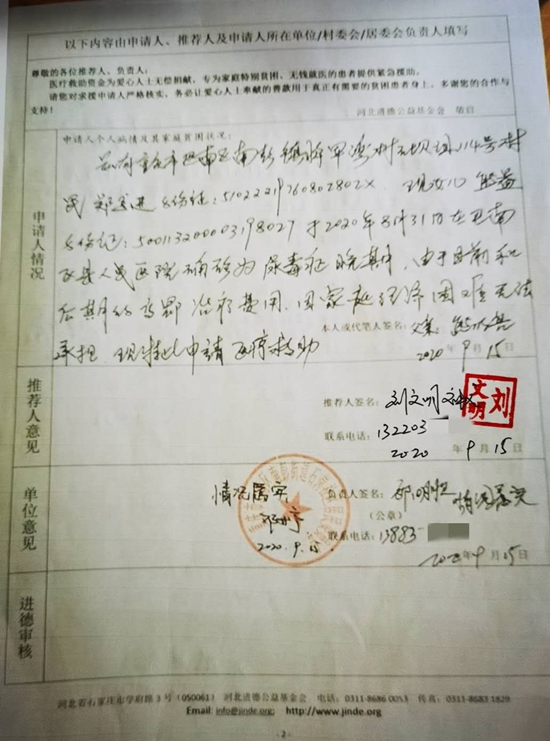 以下内容由申请人、推荐人及申请人所在单位/村委会/居委会负责人填写
尊敬的各位推荐人、负责人：
医疗救助资金为爱心人士无偿捐献，专为家庭特别贫困、无钱就医的患者提供紧急援助。
请您对求援申请人严格核实，务必让爱心人士奉献的善款用于真正有需要的贫困患者身上，多谢您的合作与
支持！
河北进德公益基金会 敬启
申请人情况
申请人个人病情及其家庭贫困状况：
兹有重庆市巴南区南彭镇将军湾村 114号村
民 进 身份证：51022219760802802X 现女儿 熊
身份证：500113200003198027 于2020年8月31日在巴南
区人民医院确诊为尿毒症晚期，由于目前和
后期的 治疗费用，因家庭经济困难无法
承担 现特此申请医疗救助
本人或代笔人签名：
2020 9月15日
推荐人意见
推荐人签名：刘文明
刘文明
联系电话：132203
2020 年9月15日
单位意见
情况属实
2020.9.15.
负责人签名：
（公章）
情况属实
联系电话：13883
2020年9月15日
进德审核
河北省石家庄市学府路3号（050061） 河北进德公益基金会 电话：0311-8686 0053 传真：0311-8683 1829
Email: info@jinde.org; http://www.jinde.org
- 2 -